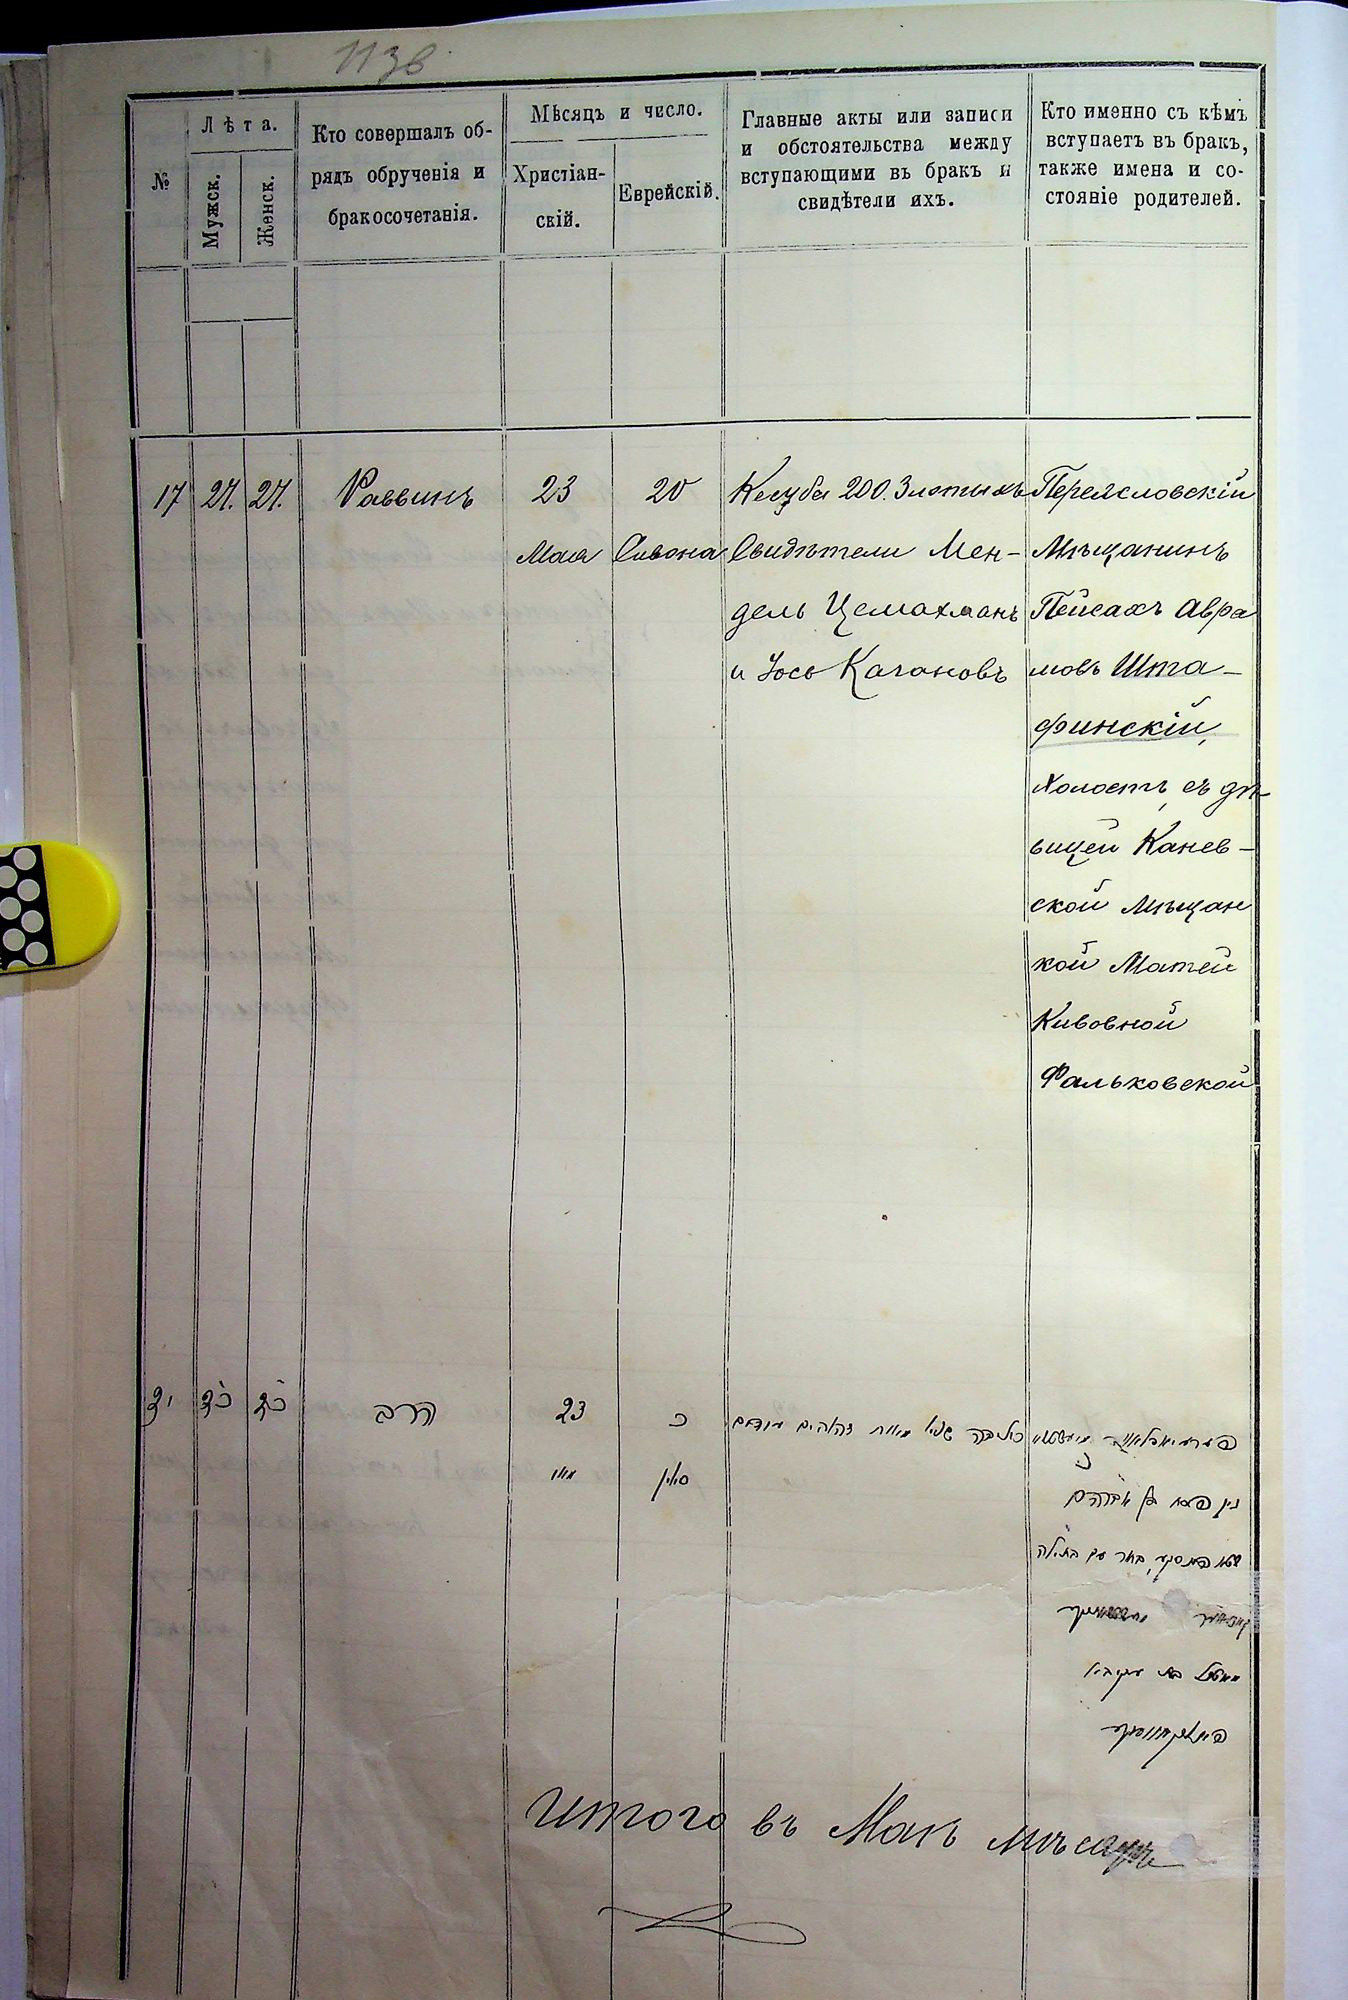 113 в
№
Лѣта.
Мужск.
Женск.
Кто совершалъ об-
рядъ обрученія и
бракосочетанія.
Мѣсяцъ и число.
Христіан-
скій.
Еврейскій.
Главные акты или записи
и обстоятельства между
вступающими въ бракъ и
свидѣтели ихъ.
Кто именно съ кѣмъ
вступаетъ въ бракъ,
также имена и со-
стояніе родителей.
17
Раввинъ
23
Мая
20
Сивона
Кесуба 200. Злотыхъ
Свидѣтели Мен-
дель Цемахманъ
и Іось Качановъ
Переясловскій
Мѣщанинъ
Пейсахъ Авра
мовъ Шта-
финскій,
Холостъ, съ дѣ-
вицей Канев-
ской мѣщан
кой Матей
Кивовной
Фальковской
הרב
23
מאי
כ
סיון
כתובה מאות זהובים
בן אברהם
בחור עם בתולה
בת עקיבא
Итого въ Маѣ мѣсяцѣ